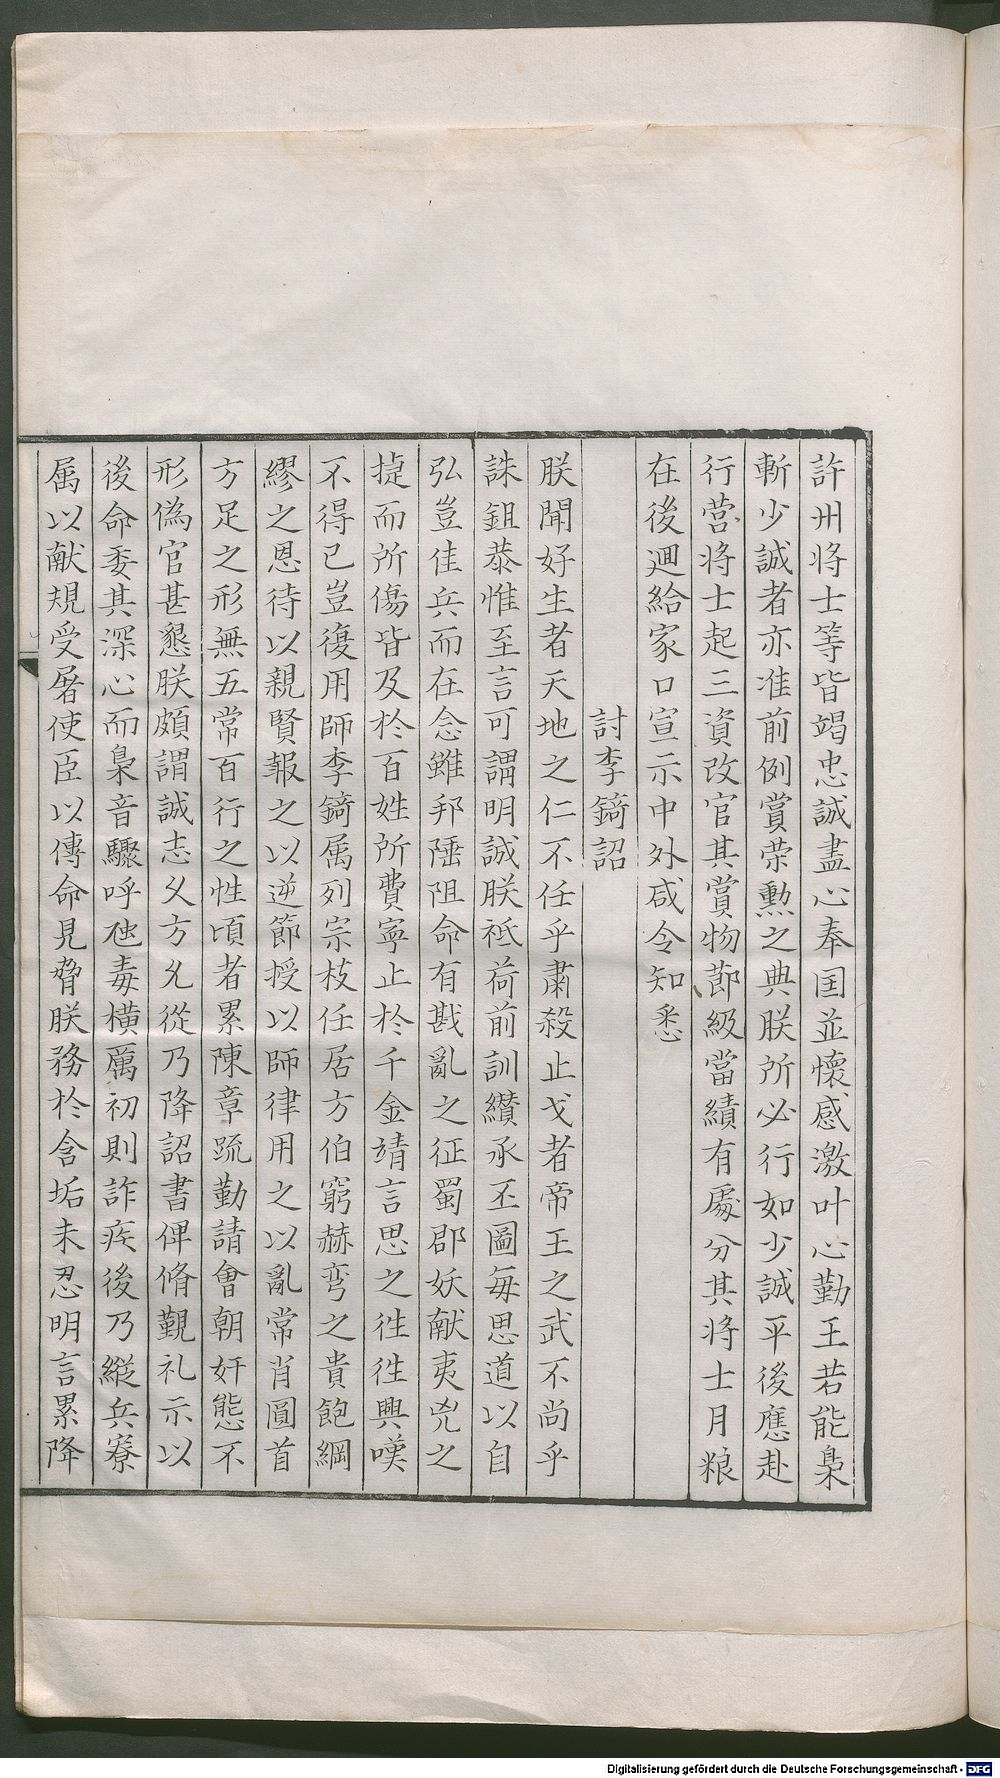 許州将士等皆竭忠誠盡心奉囯並懷感激叶心勤王若能梟
斬少誠者亦准前例賞荣勲之典朕所必行如少誠平後應赴
行营将士起三資改官其賞物節級當績有處分其将士月粮
在後逥給家口宣示中外咸令知悉
討李錡詔
朕聞好生者天地之仁不任乎肅殺止戈者帝王之武不尚乎
誅鉏恭惟至言可謂明誠朕祗荷前訓纉承丕圖每思道以自
弘豈佳兵而在念雖邦陲阻命有戡亂之征蜀郡妖献夷兇之
捷而所傷皆及於百姓所費寧止於千金靖言思之徃徃興嘆
不得已豈復用師李錡属列宗枝任居方伯窮赫弯之貴飽綱
繆之恩待以親賢報之以逆節授以師律用之以亂常肖圓首
方足之形無五常百行之性頃者累陳章䟽勤請會朝奸態不
形偽官甚懇朕頗謂誠志乂方允從乃降詔書俾脩覲礼示以
後命委其深心而梟音驟呼虵毒横厲初則詐疾後乃縱兵寮
属以献規受屠使臣以傳命見脅朕務於含垢未忍明言累降
Digitalisierung gefördert durch die Deutsche Forschungsgemeinschaft - DFG